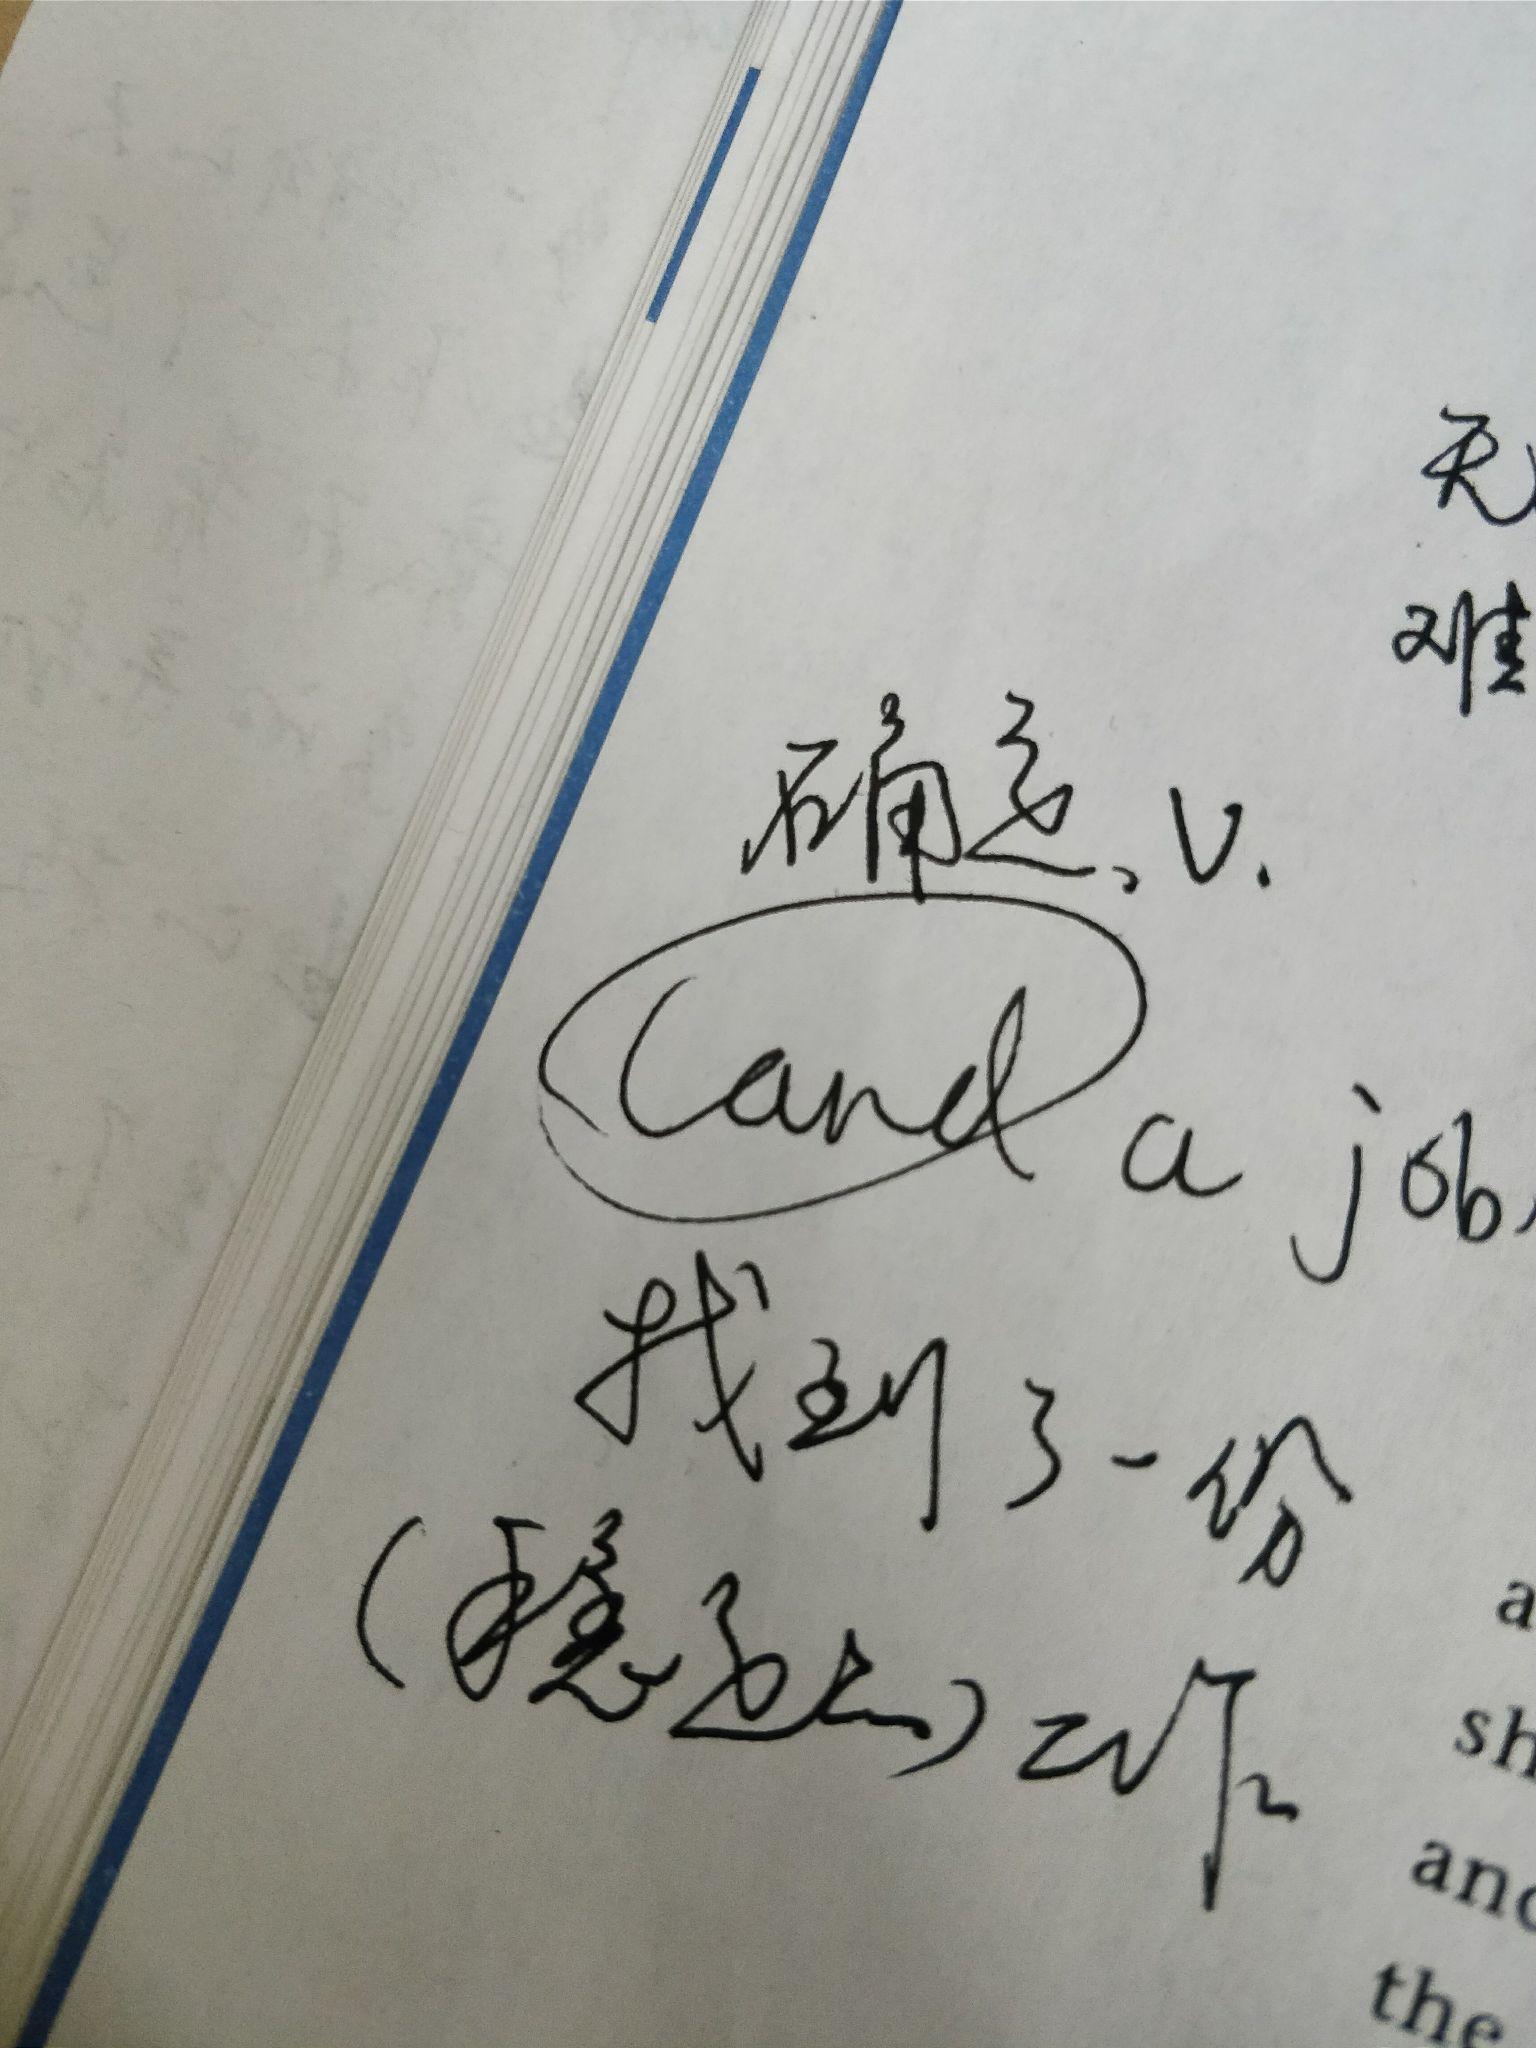 无
难
确定, v.
Land a job,
找到了一份
(稳定点) 工作
a
sh
and
the